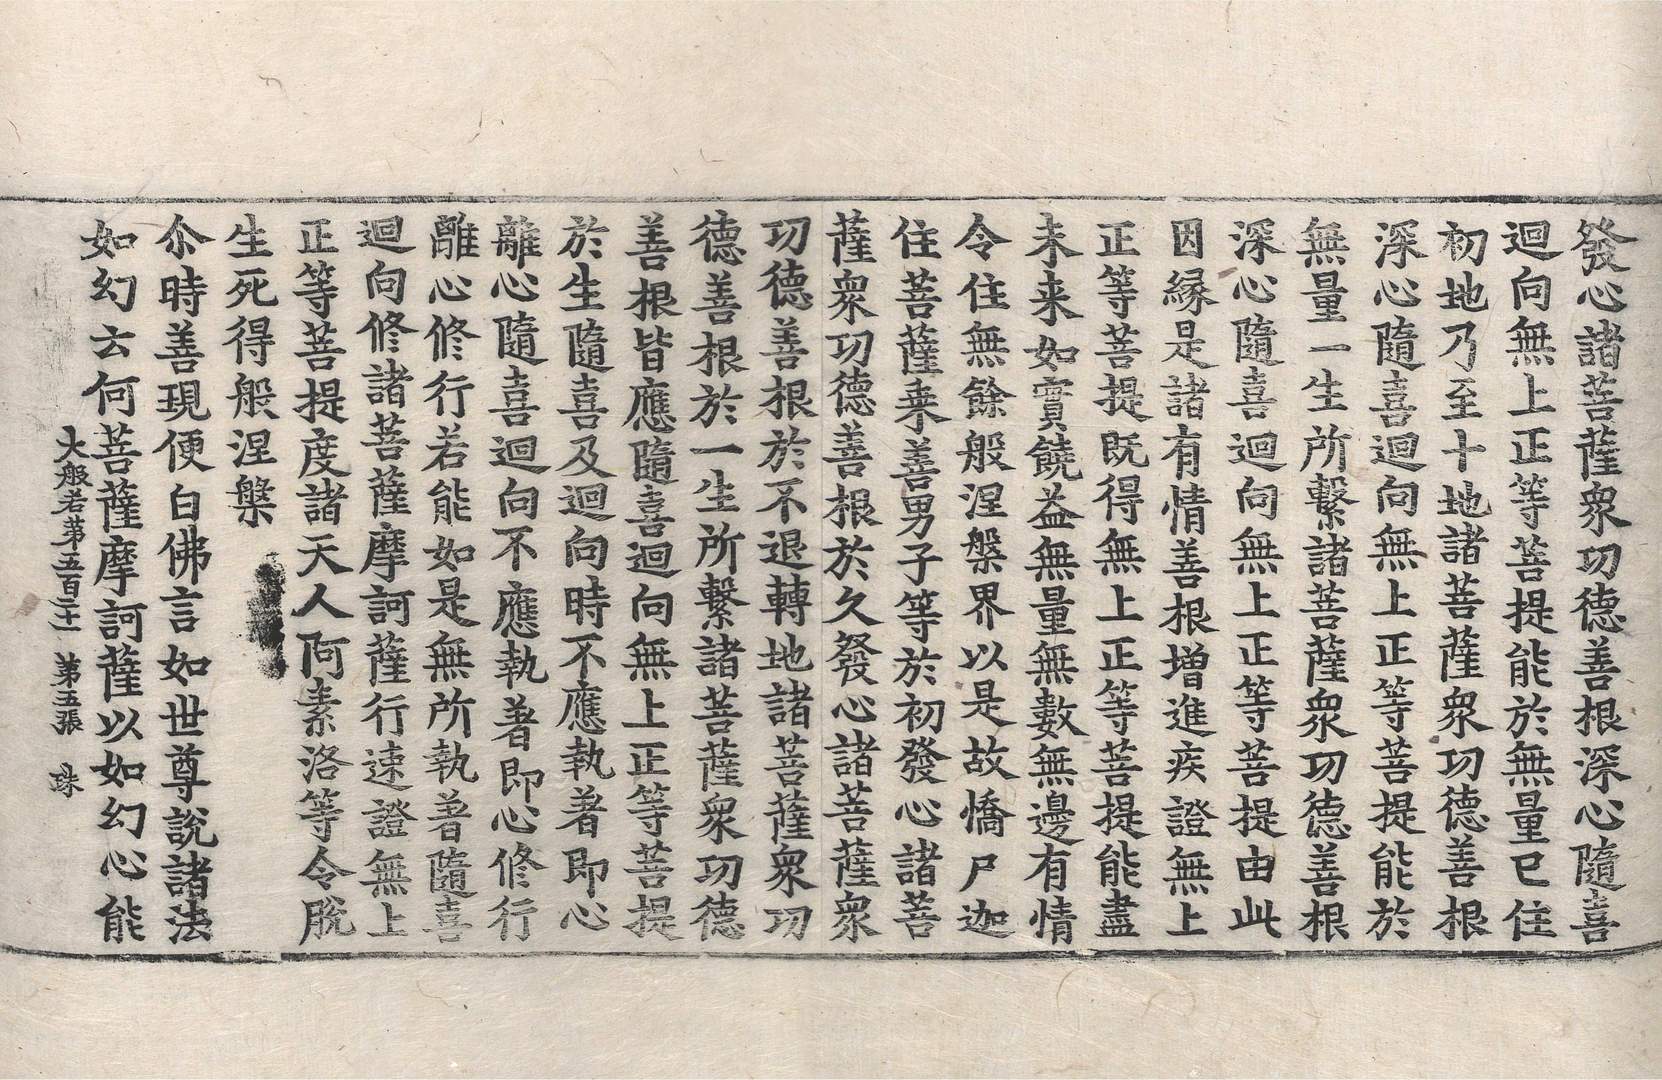 發心諸菩薩衆功德善根深心隨喜
迴向無上正等菩提能於無量已住
初地乃至十地諸菩薩衆功德善根
深心隨喜迴向無上正等菩提能於
無量一生所繫諸菩薩衆功德善根
深心隨喜迴向無上正等菩提由此
因緣是諸有情善根增進疾證無上
正等菩提既得無上正等菩提能盡
未来如實饒益無量無數無邊有情
令住無餘般涅槃界以是故憍尸迦
住菩薩乘善男子等於初發心諸菩
薩衆功德善根於久發心諸菩薩衆
功德善根於不退轉地諸菩薩衆功
德善根於一生所繫諸菩薩衆功德
善根皆應隨喜迴向無上正等菩提
於生隨喜及迴向時不應執著即心
離心隨喜迴向不應執著即心修行
離心修行若能如是無所執著隨喜
迴向修諸菩薩摩訶薩行速證無上
正等菩提度諸天人阿素洛等令脫
生死得般涅槃
尒時善現便白佛言如世尊說諸法
如幻云何菩薩摩訶薩以如幻心能
大般若第五百二十一 第五張 珠